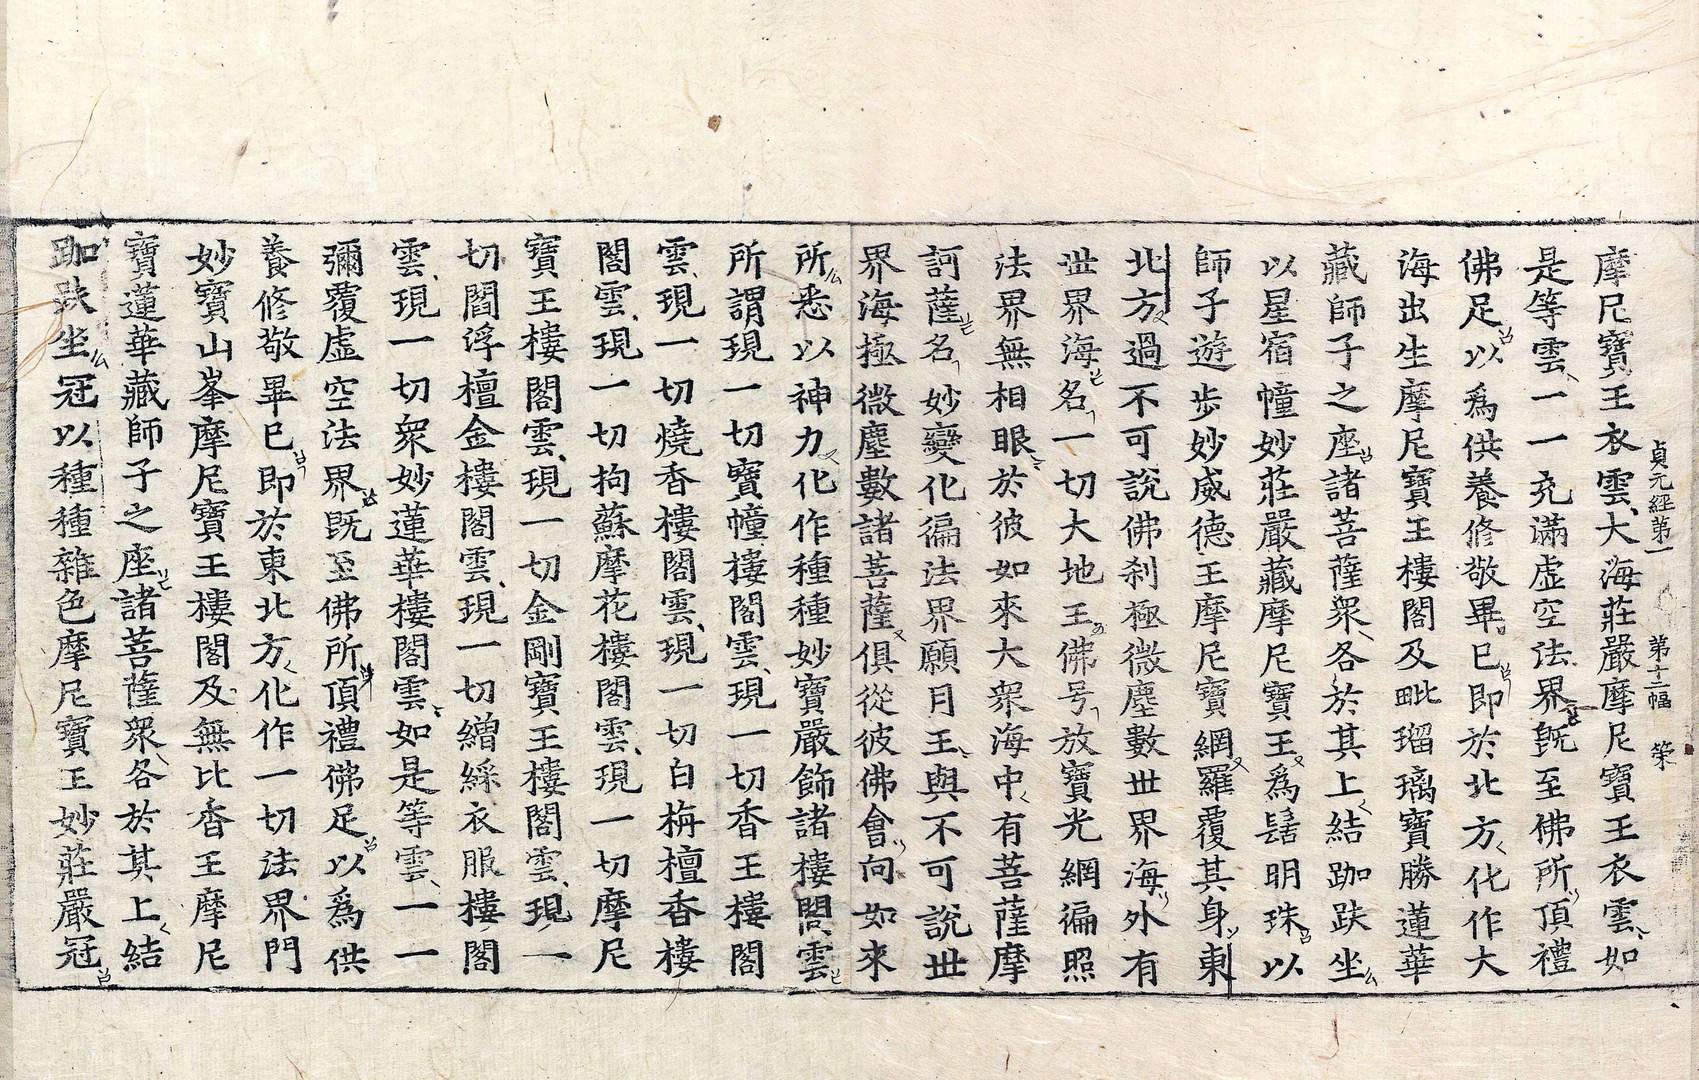 貞元經第一　第十二幅　榮
摩尼寶王衣雲大海莊嚴摩尼寶王衣雲如
是等雲一一充滿虛空法界旣至佛所頂禮
佛足以爲供養修敬畢已即於北方化作大
海出生摩尼寶王樓閣及毗瑠璃寶勝蓮華
藏師子之座諸菩薩衆各於其上結跏趺坐
以星宿幢妙莊嚴藏摩尼寶王爲髻明珠以
師子遊步妙威德王摩尼寶網羅覆其身東
北方過不可說佛刹極微塵數世界海外有
世界海名一切大地王佛号放寶光網徧照
法界無相眼於彼如來大衆海中有菩薩摩
訶薩名妙變化徧法界願月王與不可說世
界海極微塵數諸菩薩俱從彼佛會向如來
所悉以神力化作種種妙寶嚴飾諸樓閣雲
所謂現一切寶幢樓閣雲現一切香王樓閣
雲現一切燒香樓閣雲現一切白栴檀香樓
閣雲現一切拘蘇摩花樓閣雲現一切摩尼
寶王樓閣雲現一切金剛寶王樓閣雲現一
切閻浮檀金樓閣雲現一切繒綵衣服樓閣
雲現一切衆妙蓮華樓閣雲如是等雲一一
彌覆虛空法界旣至佛所頂禮佛足以爲供
養修敬畢已即於東北方化作一切法界門
妙寶山峯摩尼寶王樓閣及無比香王摩尼
寶蓮華藏師子之座諸菩薩衆各於其上結
跏趺坐冠以種種雜色摩尼寶王妙莊嚴冠